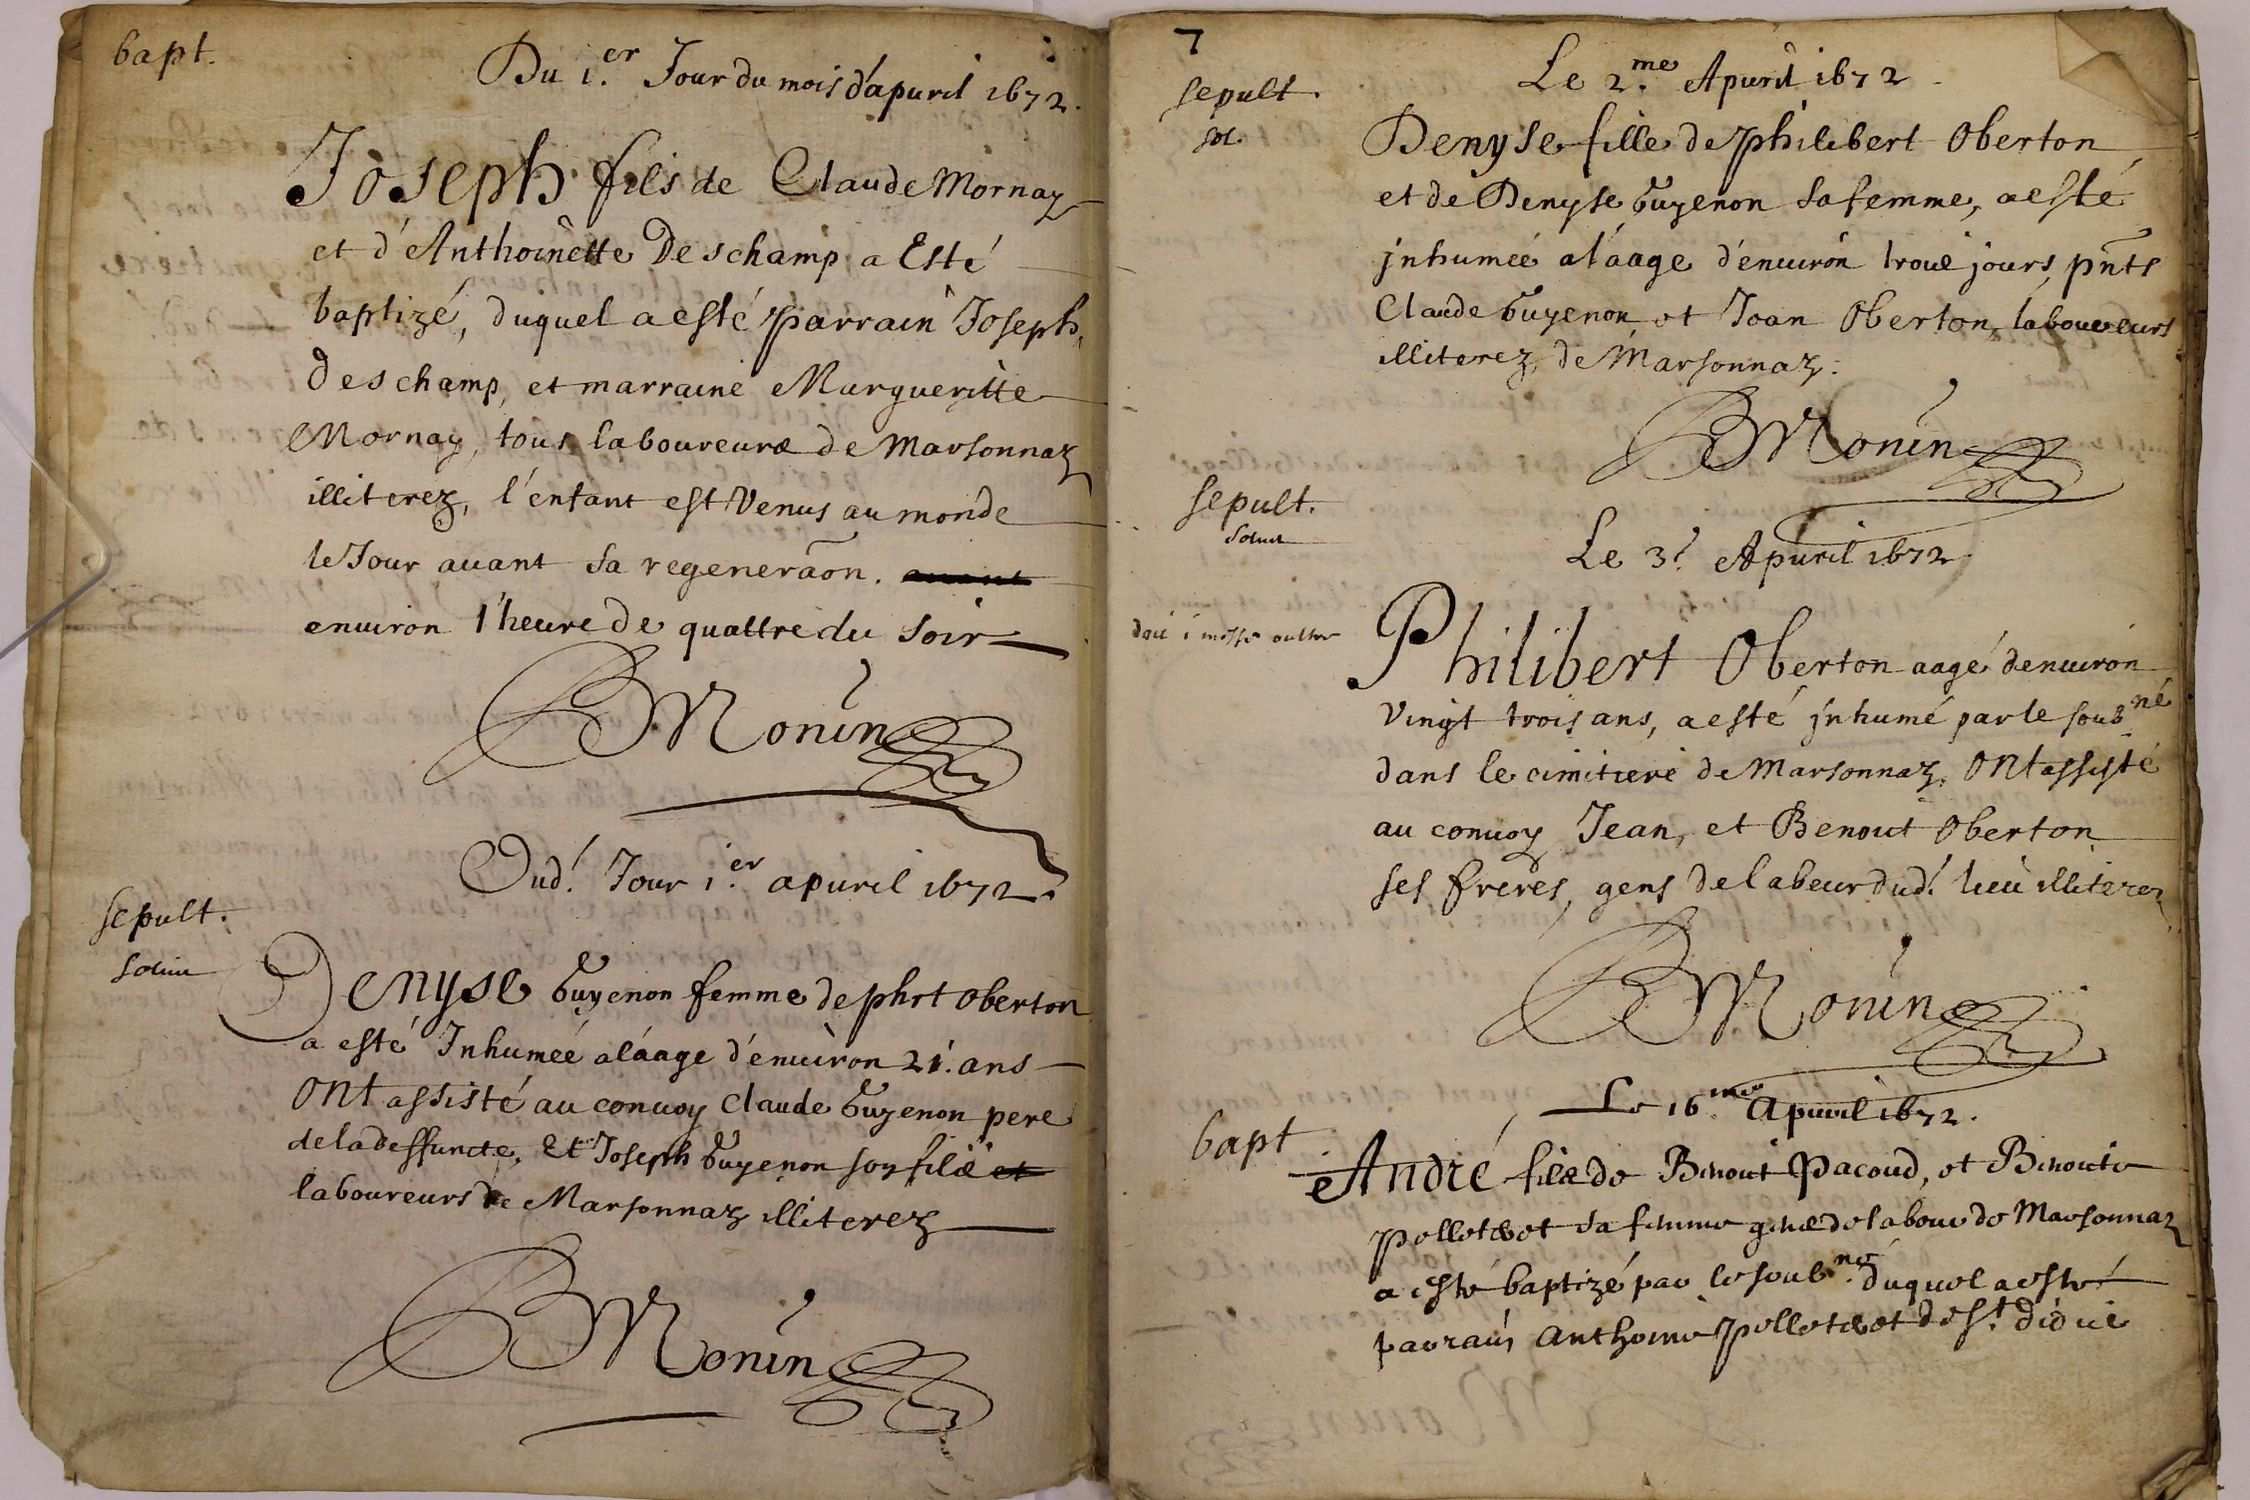 bapt.
Du 1.er Jour du mois d'apuril 1672.
Joseph fils de Claude Mornay
et d'Anthoinette Deschamp a Esté
baptizé, duquel a esté parrain Joseph
Deschamp, et marraine Margueritte
Mornay, tous laboureurs de Marsonnaz
illiterez, l'enfant est Venus au monde
le Jour auant sa regenerãon. auant
enuiron l'heure de quattre du soir
BMonin
Dud. Jour 1.er apuril 1672.
sepult.
soluit
Denyse Guyenon femme de phrt Oberton
a esté Inhumeé a l'aage d'enuiron 21. ans
Ont assisté au conuoy Claude Guyenon pere
de la deffuncte, et Joseph Guyenon son fils et
laboureurs de Marsonnaz illiterez
BMonin
7
Le 2.me Apuril 1672
sepult.
sol.
Denyse fille de philibert Oberton
et de Denyse Guyenon sa femme, a esté
jnhumeé a l'aage d'enuiron trois jours, pnts
Claude Guyenon, et Jean Oberton, laboureurs
illiterez, de Marsonnaz.
BMonin
sepult.
soluit
Le 3.e Apuril 1672
doit 1 messe
Philibert Oberton aagé denuiron
vingt trois ans, a esté jnhumé par le soubné
dans le cimitiere de Marsonnaz, Ont assisté
au conuoy Jean, et Benoit Oberton
ses freres, gens de labeur dud. lieu illiterez
BMonin
Le 16.me apuril 1672.
bapt
André fils de Benoit Pacoud, et Benoite
Pelletdet sa femme gens de labeur de Marsonnaz
a esté baptizé par le soubné duquel a esté
parrain Anthoine Pelletdet de St. Didié